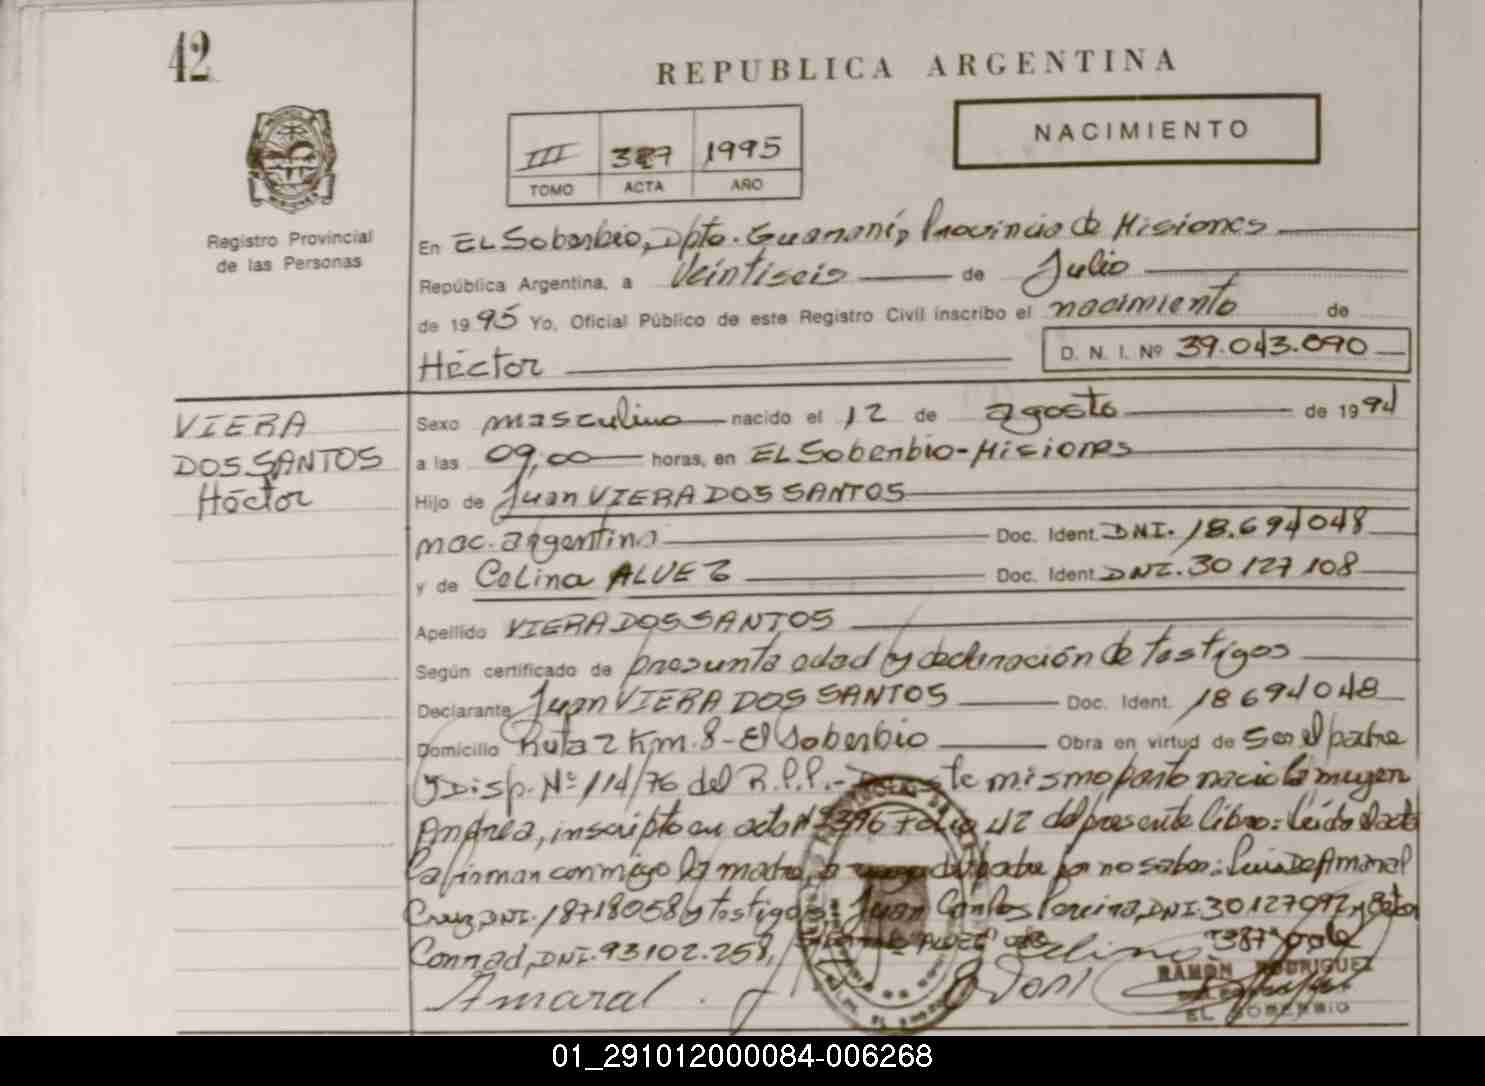 42
REPUBLICA ARGENTINA
NACIMIENTO
III 1995
TOMO ACTA AÑO
Registro Provincial
de las Personas
En EL Soberbio, Dpto. Guaraní, Provincia de Misiones
República Argentina, a Veintiseis de Julio
de 1995 Yo, Oficial Público de este Registro Civil inscribo el nacimiento de
Héctor D. N. I. Nº 39.043.090
VIERA
DOS SANTOS
Héctor
Sexo masculino nacido el 12 de agosto de 1994
a las 09,00 horas, en EL Soberbio-Misiones
Hijo de Juan VIERA DOS SANTOS
nac. argentina Doc. Ident. DNI. 18.694048
y de Celina ALVEZ Doc. Ident. DNI. 30127108
Apellido VIERA DOS SANTOS
Según certificado de presunta edad y declaración de testigos
Declarante Juan VIERA DOS SANTOS Doc. Ident. 18694048
Domicilio Ruta 2 Km. 8-El Soberbio Obra en virtud de Ser el padre
y Disp. Nº 114/76 del R.P.P.- mismo parto nació la mujer
Andrea, inscripto en acta Nº 396 Folio 42 del presente libro: Leída el acta
la firman conmigo la madre, a ruego del padre por no saber: Luis De Amaral
Cruz, DNI. 18718058 y testigos: Juan Carlos Pereira, DNI. 30127097 y
Conrad, DNI. 93102.258, "ALVEZ" "387" vale
Amaral
RAMON RODRIGUEZ
EL SOBERBIO
01_291012000084-006268